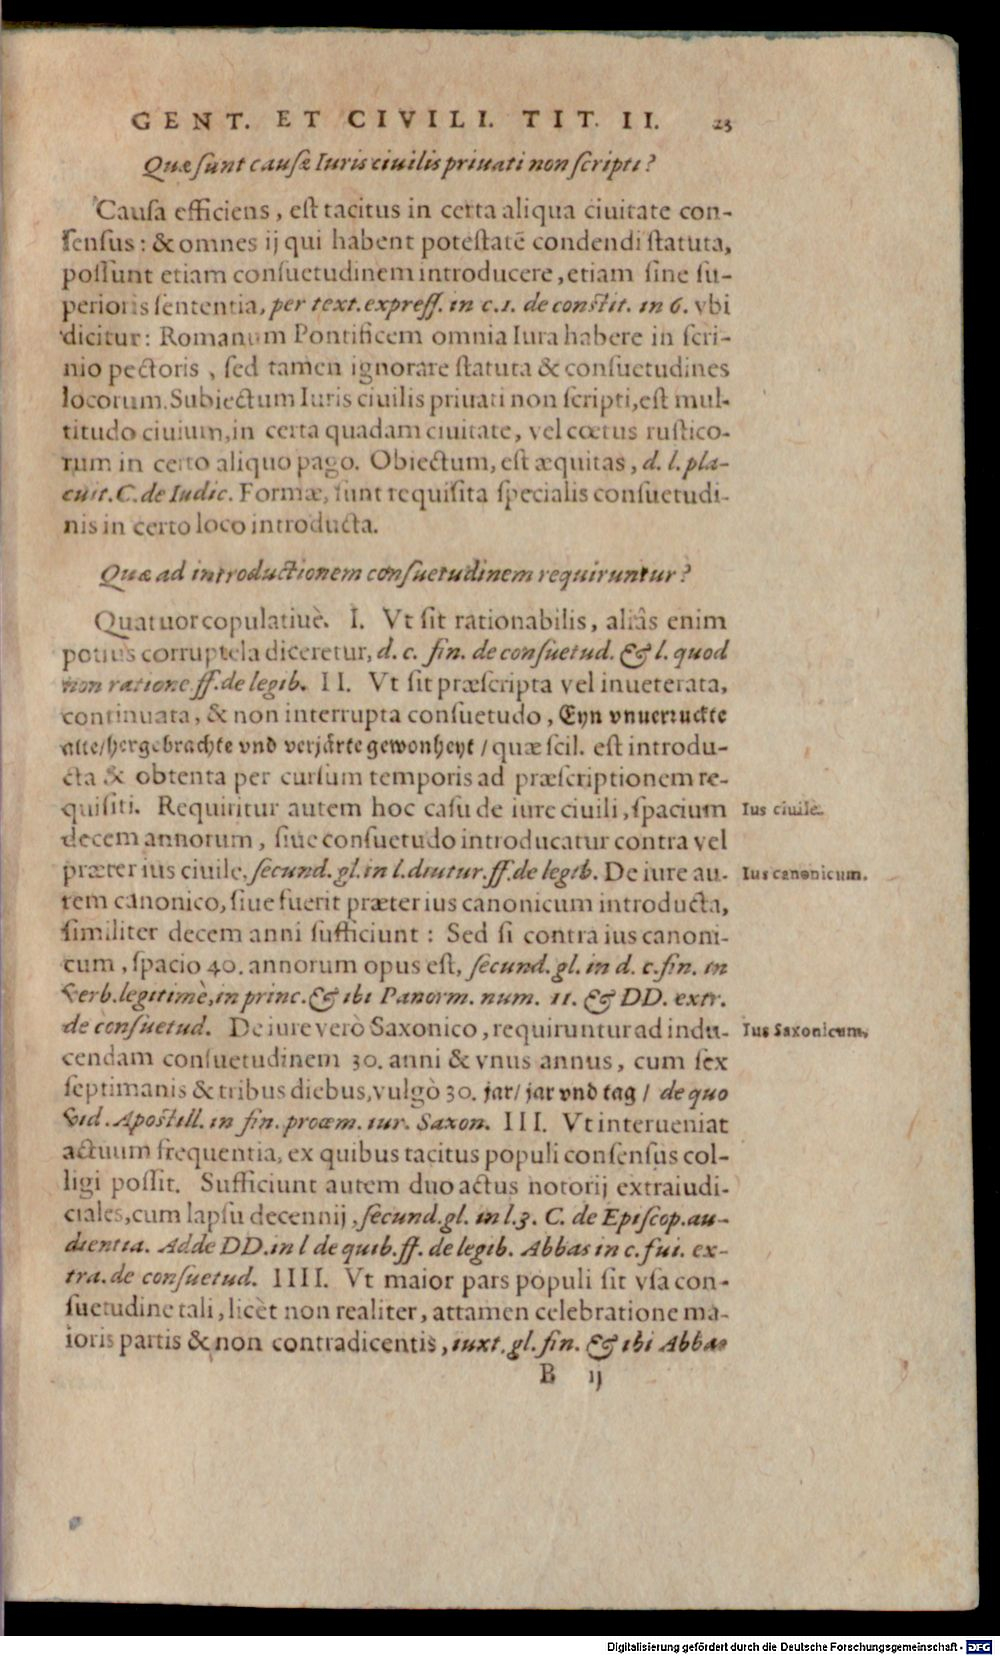 GENT. ET CIVILI. TIT. II. 23
Quæ ſunt cauſæ Iuris ciuilis priuati non ſcripti?
Cauſa efficiens, eſt tacitus in certa aliqua ciuitate con-
ſenſus: & omnes ij qui habent poteſtatē condendi ſtatuta,
poſſunt etiam conſuetudinem introducere, etiam ſine ſu-
perioris ſententia, per text. expreſſ. in c. 1. de conſtit. in 6. vbi
dicitur: Romanum Pontificem omnia Iura habere in ſcri-
nio pectoris, ſed tamen ignorare ſtatuta & conſuetudines
locorum. Subiectum Iuris ciuilis priuati non ſcripti, eſt mul-
titudo ciuium, in certa quadam ciuitate, vel cœtus ruſtico-
rum in certo aliquo pago. Obiectum, eſt æquitas, d. l. pla-
cuit. C. de Iudic. Formæ, ſunt requiſita ſpecialis conſuetudi-
nis in certo loco introducta.
Quæ ad introductionem conſuetudinem requiruntur?
Quatuor copulatiuè. I. Vt ſit rationabilis, aliâs enim
potius corruptela diceretur, d. c. fin. de conſuetud. & l. quod
non ratione ff. de legib. II. Vt ſit præſcripta vel inueterata,
continuata, & non interrupta conſuetudo, Eyn vnuerruckte
alte/hergebrachte vnd verjårte gewonheyt / quæ ſcil. eſt introdu-
cta & obtenta per curſum temporis ad præſcriptionem re-
quiſiti. Requiritur autem hoc caſu de iure ciuili, ſpacium
Ius ciuile.
decem annorum, ſiue conſuetudo introducatur contra vel
præter ius ciuile, ſecund. gl. in l. diutur. ff. de legib. De iure au-
Ius canonicum.
tem canonico, ſiue fuerit præter ius canonicum introducta,
ſimiliter decem anni ſufficiunt: Sed ſi contra ius canoni-
cum, ſpacio 40. annorum opus eſt, ſecund. gl. in d. c. fin. in
verb. legitimè, in princ. & ibi Panorm. num. 11. & DD. extr.
de conſuetud. De iure verò Saxonico, requiruntur ad indu-
Ius Saxonicum.
cendam conſuetudinem 30. anni & vnus annus, cum ſex
ſeptimanis & tribus diebus, vulgò 30. jar/ jar vnd tag / de quo
vid. Apoſtill. in fin. proœm. iur. Saxon. III. Vt interueniat
actuum frequentia, ex quibus tacitus populi conſenſus col-
ligi poſſit. Sufficiunt autem duo actus notorij extraiudi-
ciales, cum lapſu decennij, ſecund. gl. in l. 3. C. de Epiſcop. au-
dientia. Adde DD. in l de quib. ff. de legib. Abbas in c. fui. ex-
tra. de conſuetud. IIII. Vt maior pars populi ſit vſa con-
ſuetudine tali, licèt non realiter, attamen celebratione ma-
ioris partis & non contradicentis, iuxt. gl. fin. & ibi Abbas
B ij
Digitalisierung gefördert durch die Deutsche Forschungsgemeinschaft - DFG